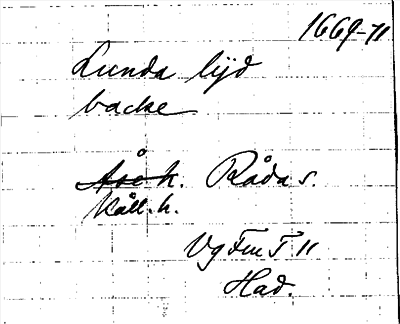 1669-71
Lunda lijd
backe
Åse h. Råda s.
Kåll. h.
Vg Fm T 11
Had.